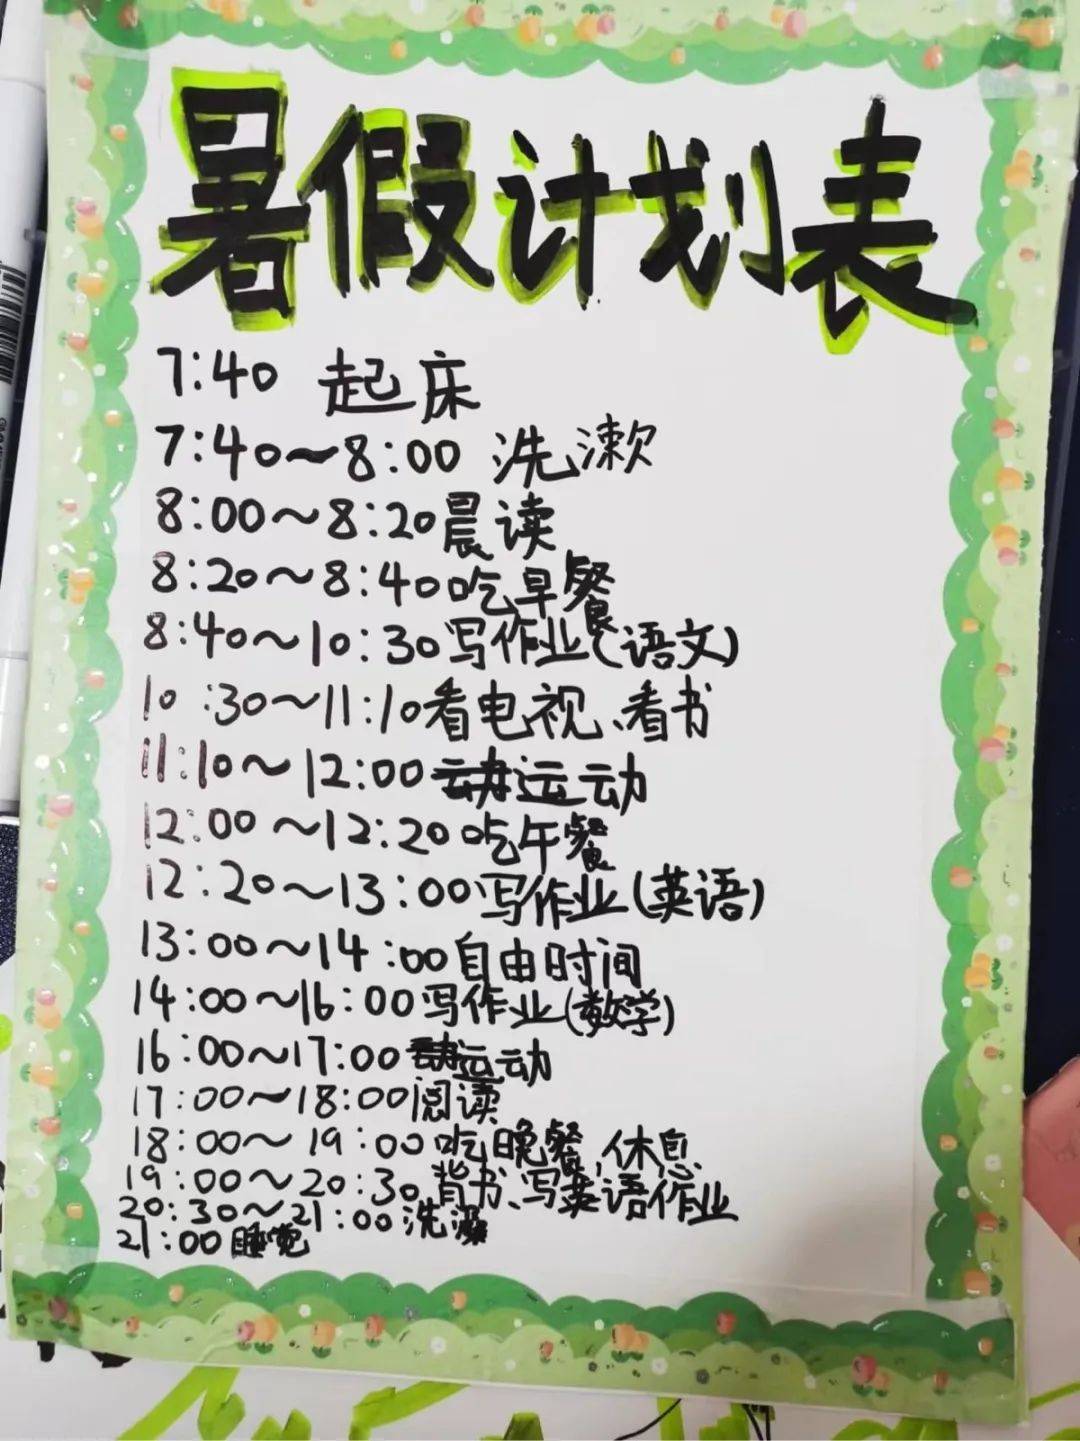 暑假计划表
7:40 起床
7:40~8:00 洗漱
8:00~8:20晨读
8:20~8:40吃早餐
8:40~10:30写作业(语文)
10:30~11:10看电视、看书
11:10~12:00运动
12:00~12:20吃午餐
12:20~13:00写作业(英语)
13:00~14:00自由时间
14:00~16:00写作业(数学)
16:00~17:00运动
17:00~18:00阅读
18:00~19:00吃晚餐,休息
19:00~20:30背书、写英语作业
20:30~21:00洗漱
21:00睡觉